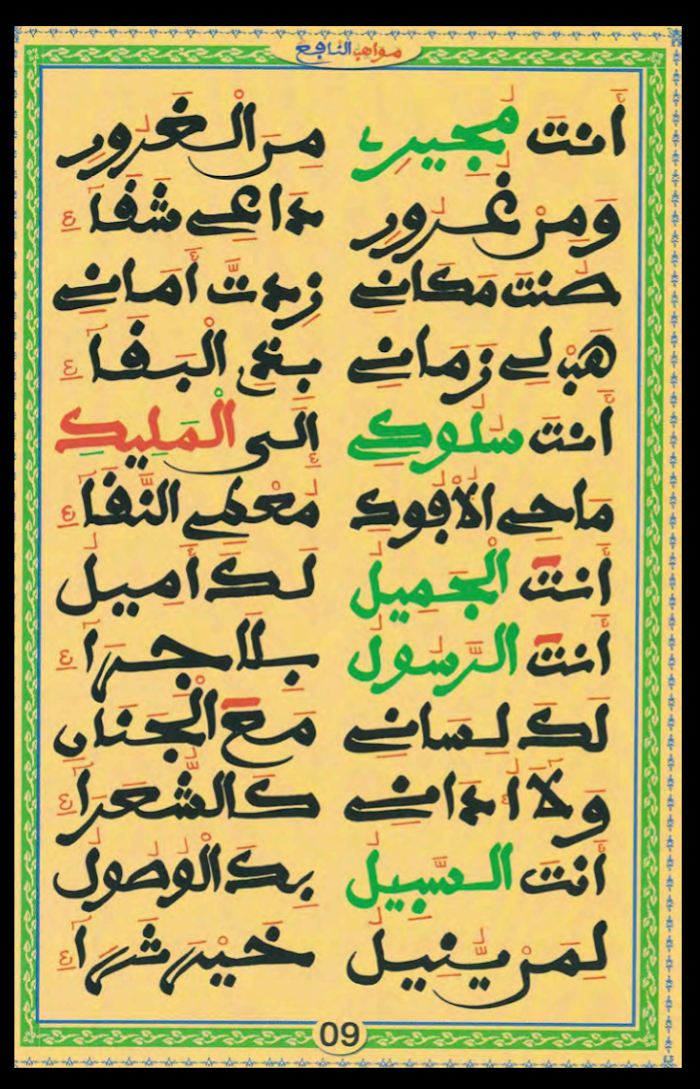 مواهب النافع
أنت مجير من الغرور
ومن غرور داعي شفاء
صنت مكاني زدت أماني
هب لي زماني بنحي البقاء
أنت سلوكي إلى المليك
ماحي الأفوك معطي النقاء
أنت الجميل لك أميل
أنت الرسول بلا جراء
لك لساني مع الجنان
ولا أداني كالشعراء
أنت السبيل بك الوصول
لمن ينيل خير شراء
09